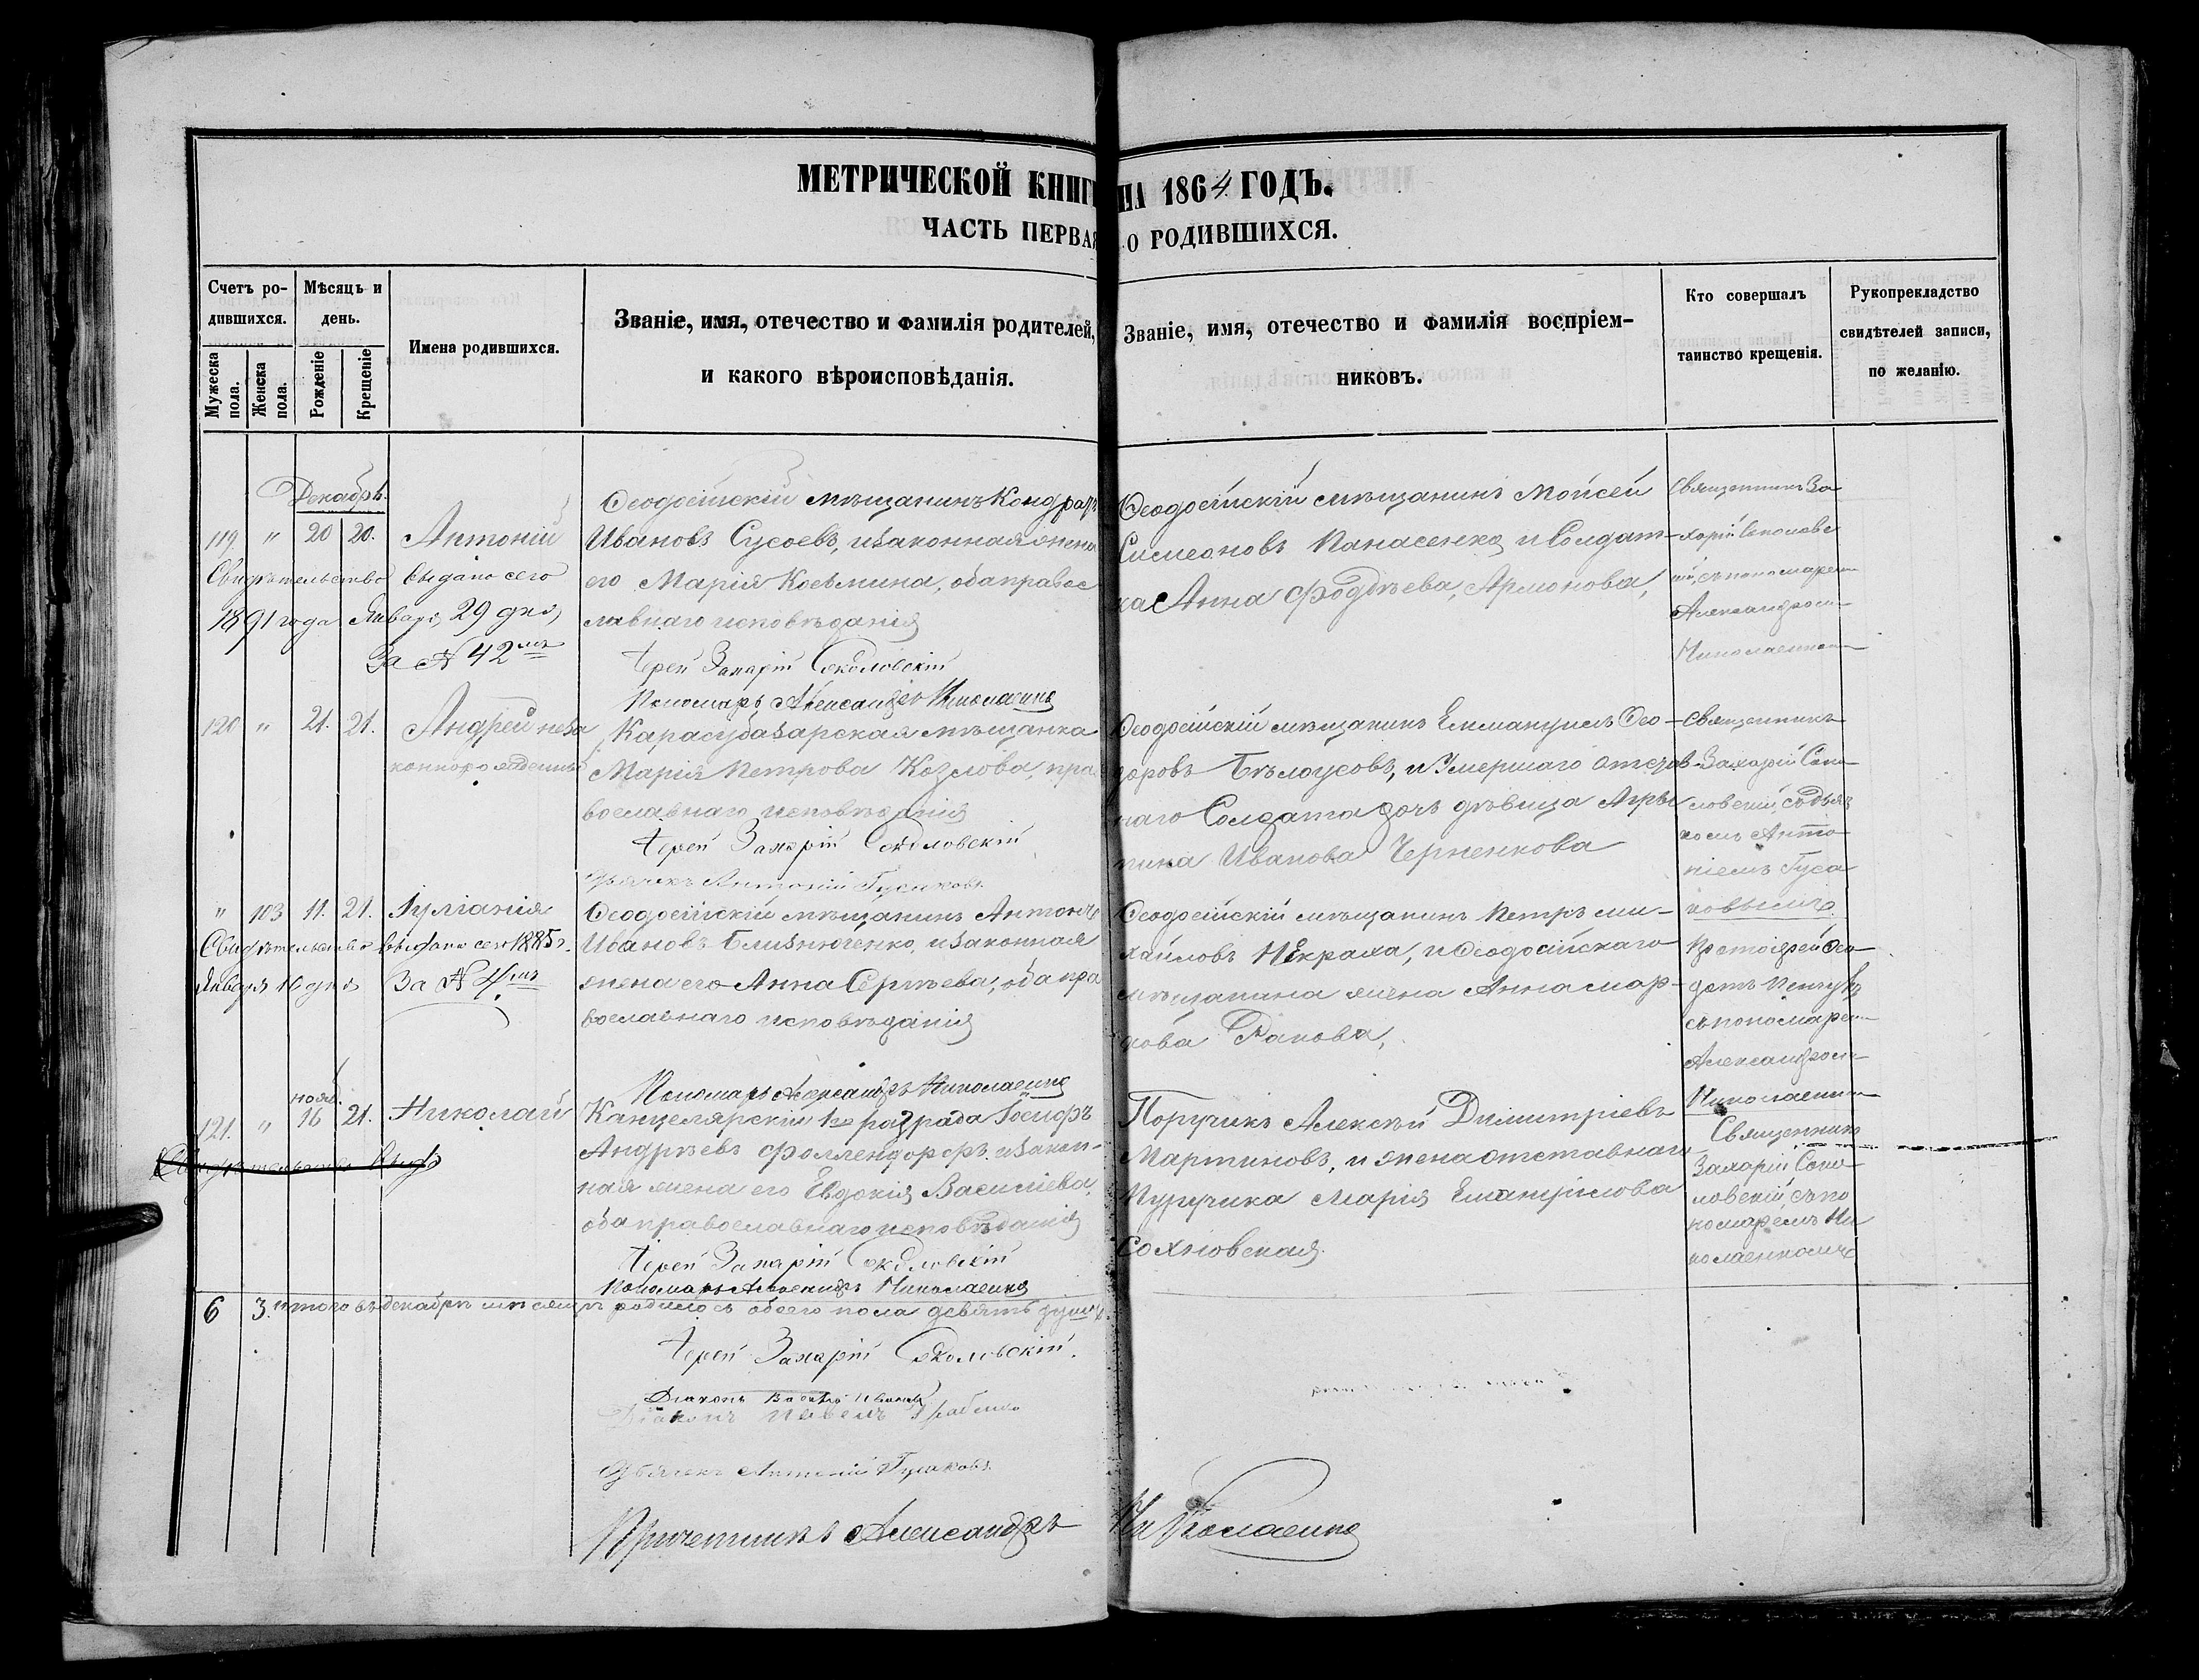 МЕТРИЧЕСКОЙ КНИГИ НА 1864 ГОДЪ.
ЧАСТЬ ПЕРВАЯ О РОДИВШИХСЯ.
Счетъ родившихся.
Мужеска пола.
Женска пола.
Мѣсяцъ и день.
Рожденіе
Крещеніе
Имена родившихся.
Званіе, имя, отечество и фамилія родителей,
и какого вѣроисповѣданія.
Званіе, имя, отечество и фамилія воспріем-
никовъ.
Кто совершалъ
таинство крещенія.
Рукоприкладство
свидѣтелей записи,
по желанію.
Декабрь.
119. " 20 20. Антоній
Свидѣтельство выдано сего
1891 года Января 29 дня,
За № 42мъ
Ѳеодосійскій мѣщанинъ Кондратъ
Ивановъ Сусоевъ, и законная жена
его Марія Косьмина, оба правос
лавнаго исповѣданія
Іерей Захарій Соколовскій
Пономарь Александръ Николаенко
Ѳеодосійскій мѣщанинъ Моисей
Симеоновъ Панасенко, и Солдат-
ка Анна
Священникъ За
харій Соколовс
кій, съ пономарем
Александром
Николаенком
120 " 21. 21. Андрей неза
коннорожденный
Карасубазарская мѣщанка
Марія Петрова Козлова, пра
вославнаго исповѣданія
Іерей Захарій Соколовскій
Дьячекъ Антоній Гусаковъ
Ѳеодосійскій мѣщанинъ Еммануилъ Ѳео-
доровъ Бѣлоусовъ, и Умершаго отстав-
наго Солдата дочь дѣвица Агрип
пина Иванова Черненкова
Священникъ
Захарій Соко-
ловскій, съ дьяч
комъ Анто-
ніемъ Гуса
ковымъ
" 103 11. 21. Іуліанія
Свидѣтельство выдано сего 1885 г.
Января 10 дня За № 4мъ
Ѳеодосійскій мѣщанинъ Антонъ
Ивановъ Близнюченко, и законная
жена его Анна Сергѣева, оба пра
вославнаго исповѣданія
Пономарь Александръ Николаенко
Ѳеодосійскій мѣщанинъ Петръ Ми-
хайловъ Некраха, и Ѳеодосійскаго
мѣщанина жена Анна Мар-
кова Ракова,
Протоіерей Ѳео-
съ пономарем
Александром
Николаенком
нояб.
121. " 16 21. Николай
Свидѣтельство выд
Канцелярскій 1го разряда Іосифъ
Андрѣевъ Фоллендорфъ, и закон-
ная жена его Евдокія Василіева,
оба православнаго исповѣданія
Іерей Захарій Соколовскій
Пономарь Александръ Николаенко
Поручикъ Алексѣй Димитріевъ
Мартиновъ, и жена отставнаго
Пуручика Марія
Священникъ
Захарій Соко-
ловскій съ по
номаремъ Ни
колаенкомъ
6 3. итого въ декабрѣ мѣсяцѣ родилось обоего пола девять душъ.
Іерей Захарій Соколовскій.
Діаконъ
Діаконъ
Дьячекъ Антоній Гусаковъ
Причетникъ Александръ Николаенко